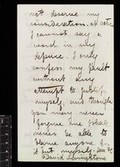 not deserve my
consideration, at all
I cannot say a
word in my
defence. I only
confess my fault
without any
attempt to justify
myself, and though
you may never
forgive me I shall
never be able to
blame anyone
but myself.
David Livingstone